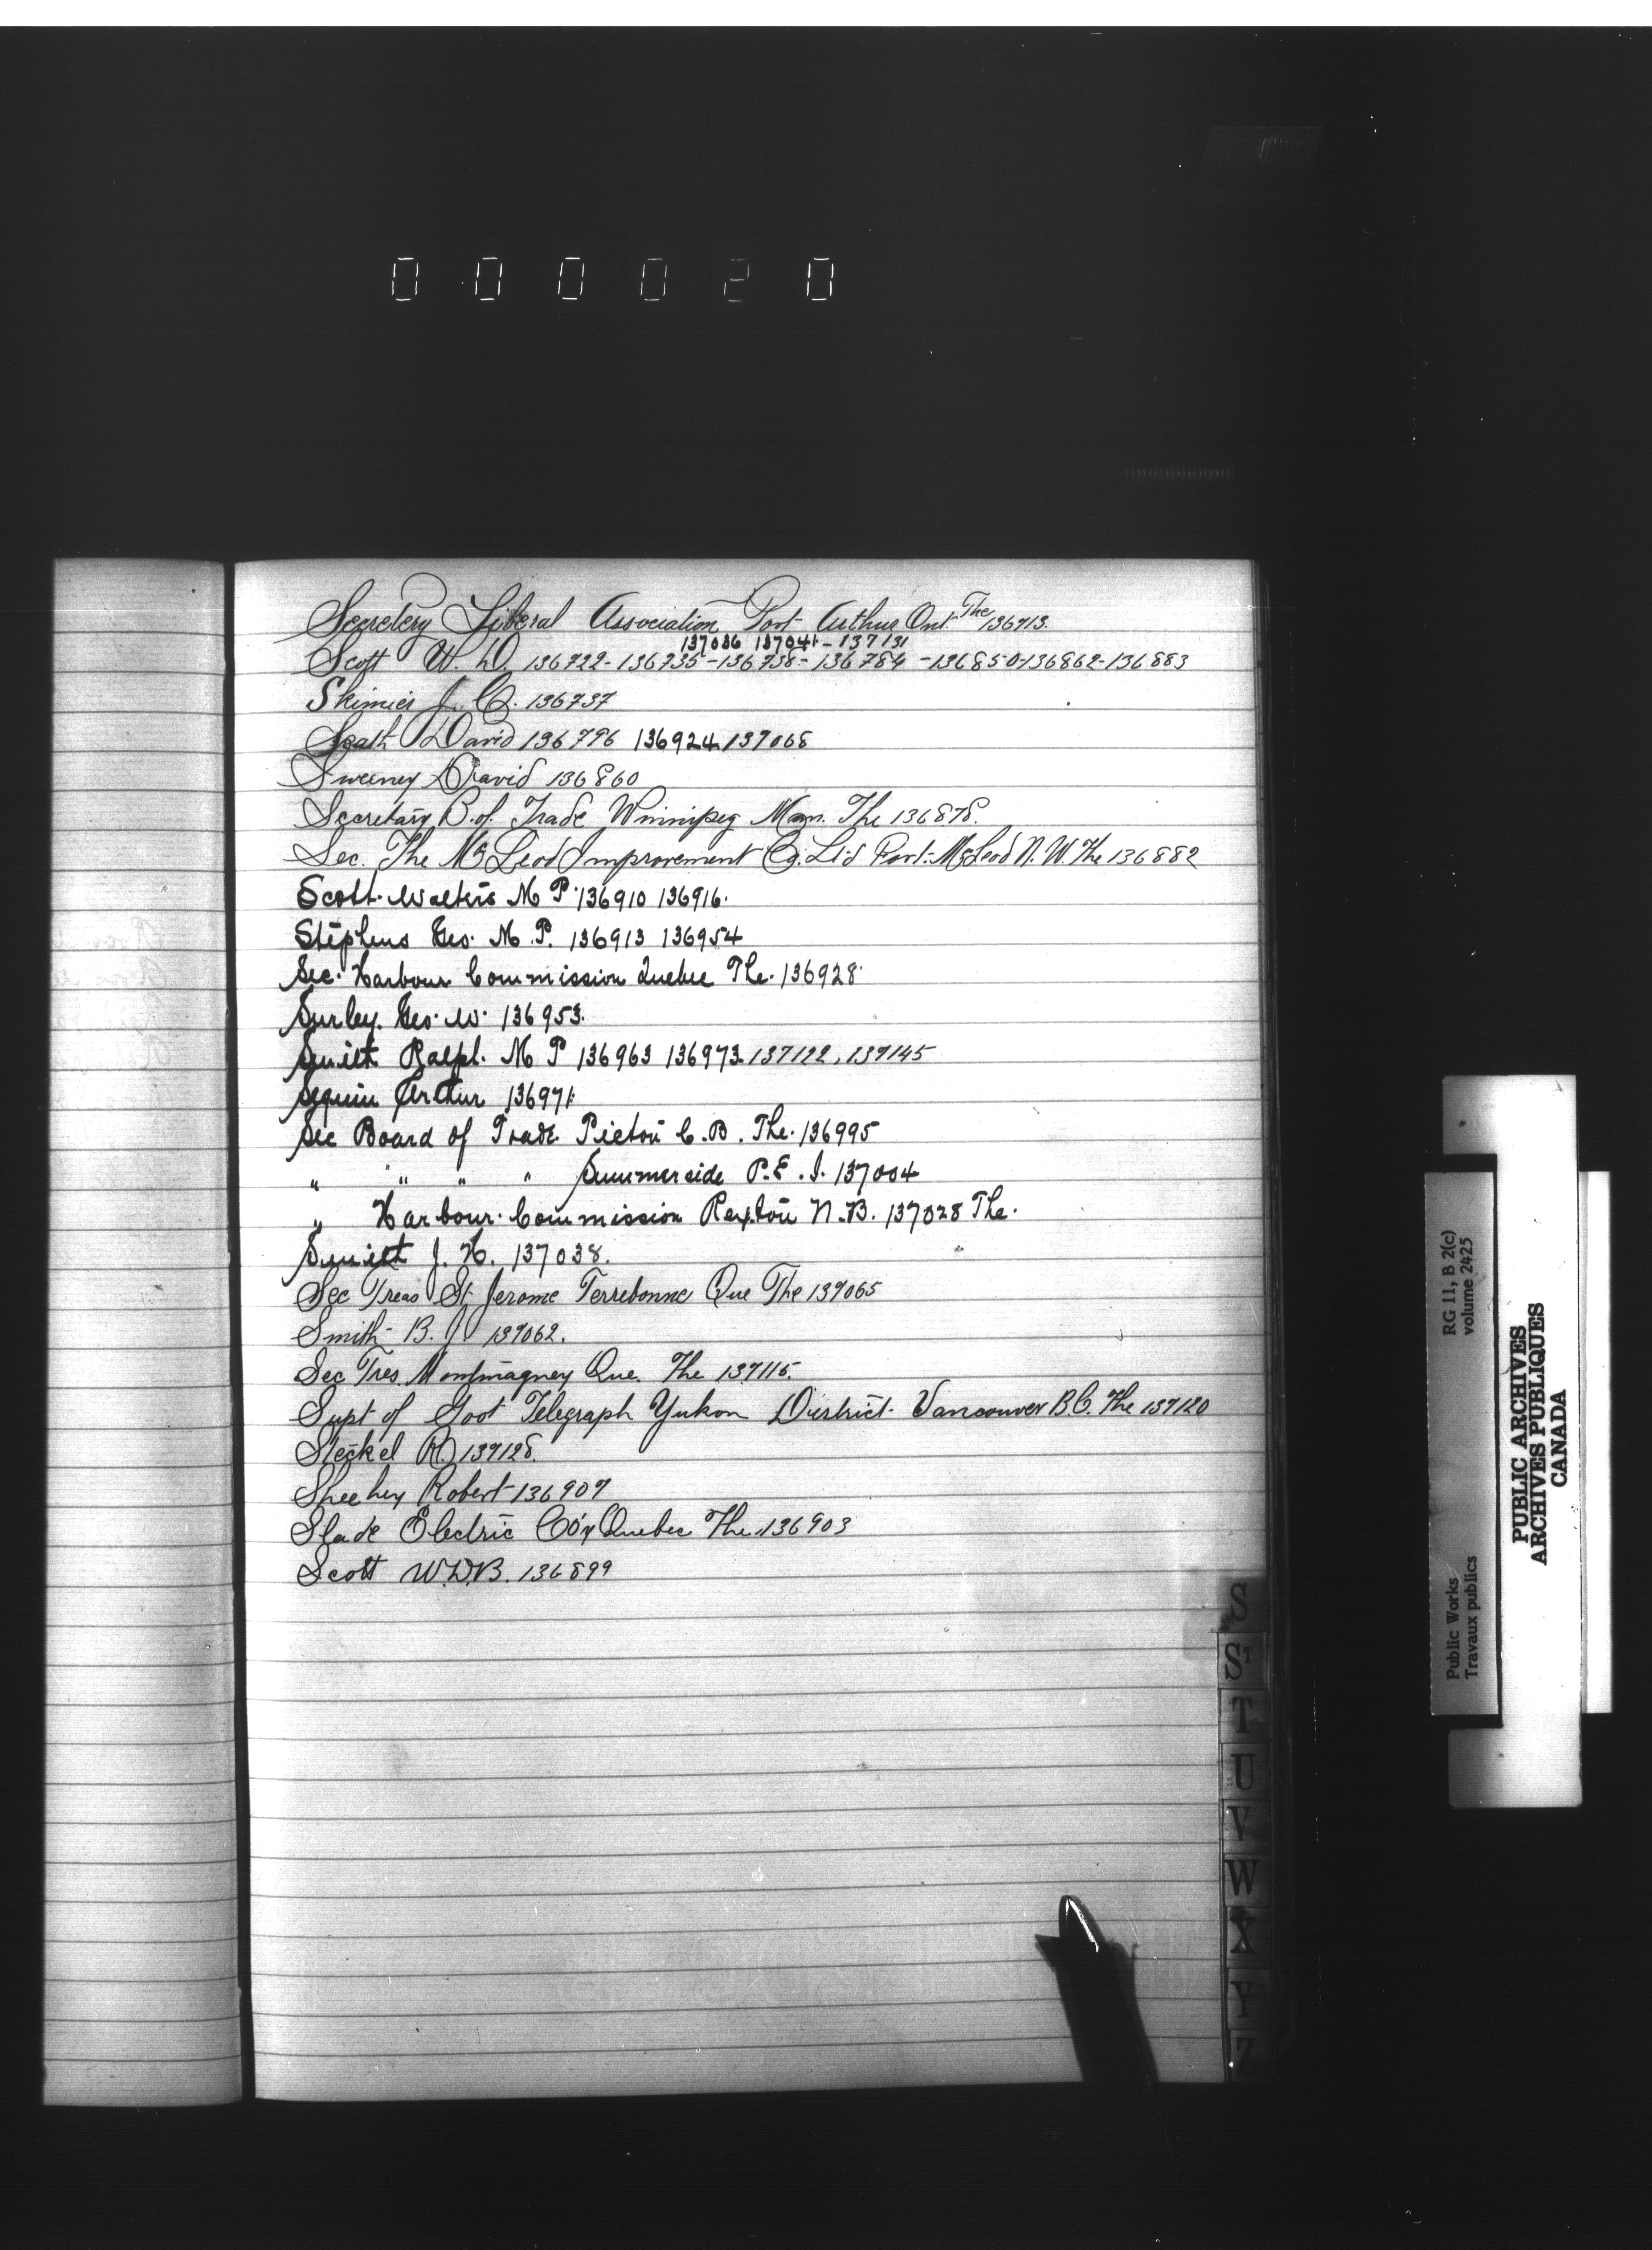 000020
Secretery Liberal Association Port Arthur Ont The 136713.
137036 137041-137131
Scott W. D. 136722-136735-136738-136784-136850-136862-136883
J. 136737
David 136796 136924 137068
Sweeney David 136860
Secretary B. of Trade Winnipeg Man. The 136878.
Sec. The McLeod Improvement Co. Ltd Fort McLeod N. W The 136882
Scott Walters M P 136910 136916.
Stephens Geo. M. P. 136913 136954
Sec. Harbour Commission Quebec The. 136928
Surley. Geo. W. 136953.
Smith Ralph. M P 136963 136973. 137122, 137145
Seguin Arthur 136971
Sec Board of Trade Picton C. B. The. 136995
" " " " Summerside P. E. I. 137004
" Harbour Commission Rexton N. B. 137028 The.
Smith J. H. 137038.
Sec Treas St Jerome Terrebonne Que The 137065
Smith B. J 137062.
Sec Tres. Montmagney Que. The 137115.
Supt of Govt Telegraph Yukon District Vancouver B.C. The 137120
Steckel R. 137128.
Sheehey Robert 136907
Slade Electric Co'y Quebec The 136903
Scott W. D. B. 136899
S
St
T
U
V
W
X
Y
Z
Public Works
Travaux publics
RG 11, B 2(c)
volume 2425
PUBLIC ARCHIVES
ARCHIVES PUBLIQUES
CANADA